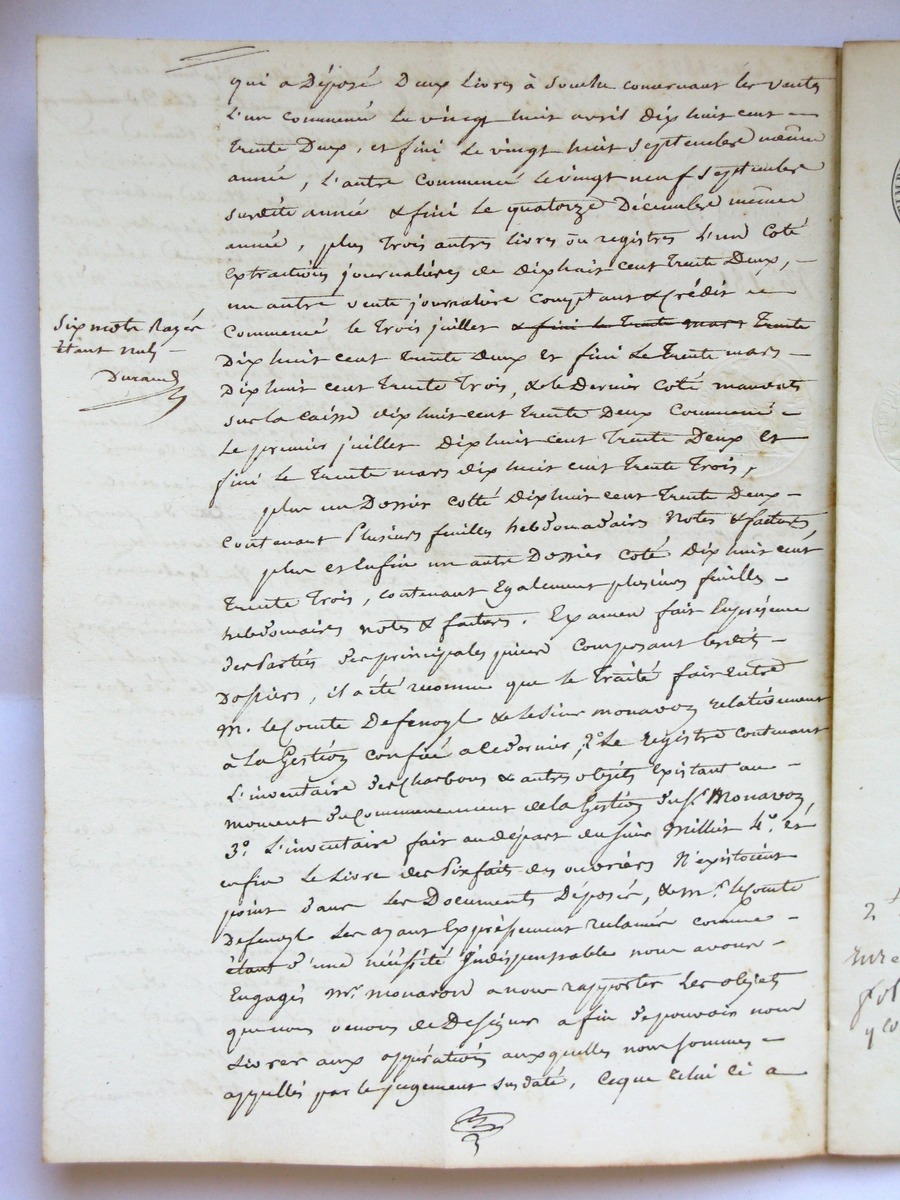 qui a Déposé Deux Livres à Souche concernant les ventes
L'un commencé Le vingt huit avril dix huit cent
trente Deux, et fini Le vingt huit Septembre même
année, L'autre Commencé Le vingt neuf Septembre
surdite année & fini Le quatorze Décembre même
année, plus Trois autres livres ou registres L'un Coté
Extractions journalières de dix huit cent trente Deux,
un autre vente journalière Comptant & Crédit
Commencé le Trois juillet & fini le trente mars trente
Dix huit cent trente Deux et fini Le trente mars
Dix huit cent trente Trois, & le Dernier Coté mandats
sur la Caisse dix huit cent trente Deux Commencé
Le premier juillet Dix huit cent trente Deux et
fini Le trente mars dix huit cent trente Trois,
plus un Dossier Cotté Dix huit cent trente Deux
contenant Plusieurs feuilles hebdomadaires Notes & factures,
plus et Enfin un autre Dossier Coté Dix huit cent
trente Trois, contenant Egalement plusieurs feuilles
hebdomaires notes & factures. Examen fait En présence
des Parties des principales pièces Composant lesdits
Dossiers, il a été reconnu que le Traité fait Entre
M. le Comte Defenoyl & le Sieur monavon relativement
à La Gestion confiée a ce dernier, 2º Le registre contenant
L'inventaire des Charbons & autres objets Existant au
moment du Commencement de la Gestion du Sr. Monavon,
3º. L'inventaire fait au départ du Sieur Milliet 4º. et
enfin Le Livre des Prixfaits des ouvriers N'existoient
point dans Les Documents Déposés, & Mr. le Comte
Defenoyl Les ayant Expressément réclamés comme
étant d'une nécéssité Indispensable nous avons
Engagés Mr. monavon a nous rapporter Les objets
que nous venons de Designer afin de pouvoir nous
Livrer aux opérations auxquelles nous sommes
appellés par le jugement susdaté, Ce que celui Ci a
Six mots Rayés
Etant nuls
Durand